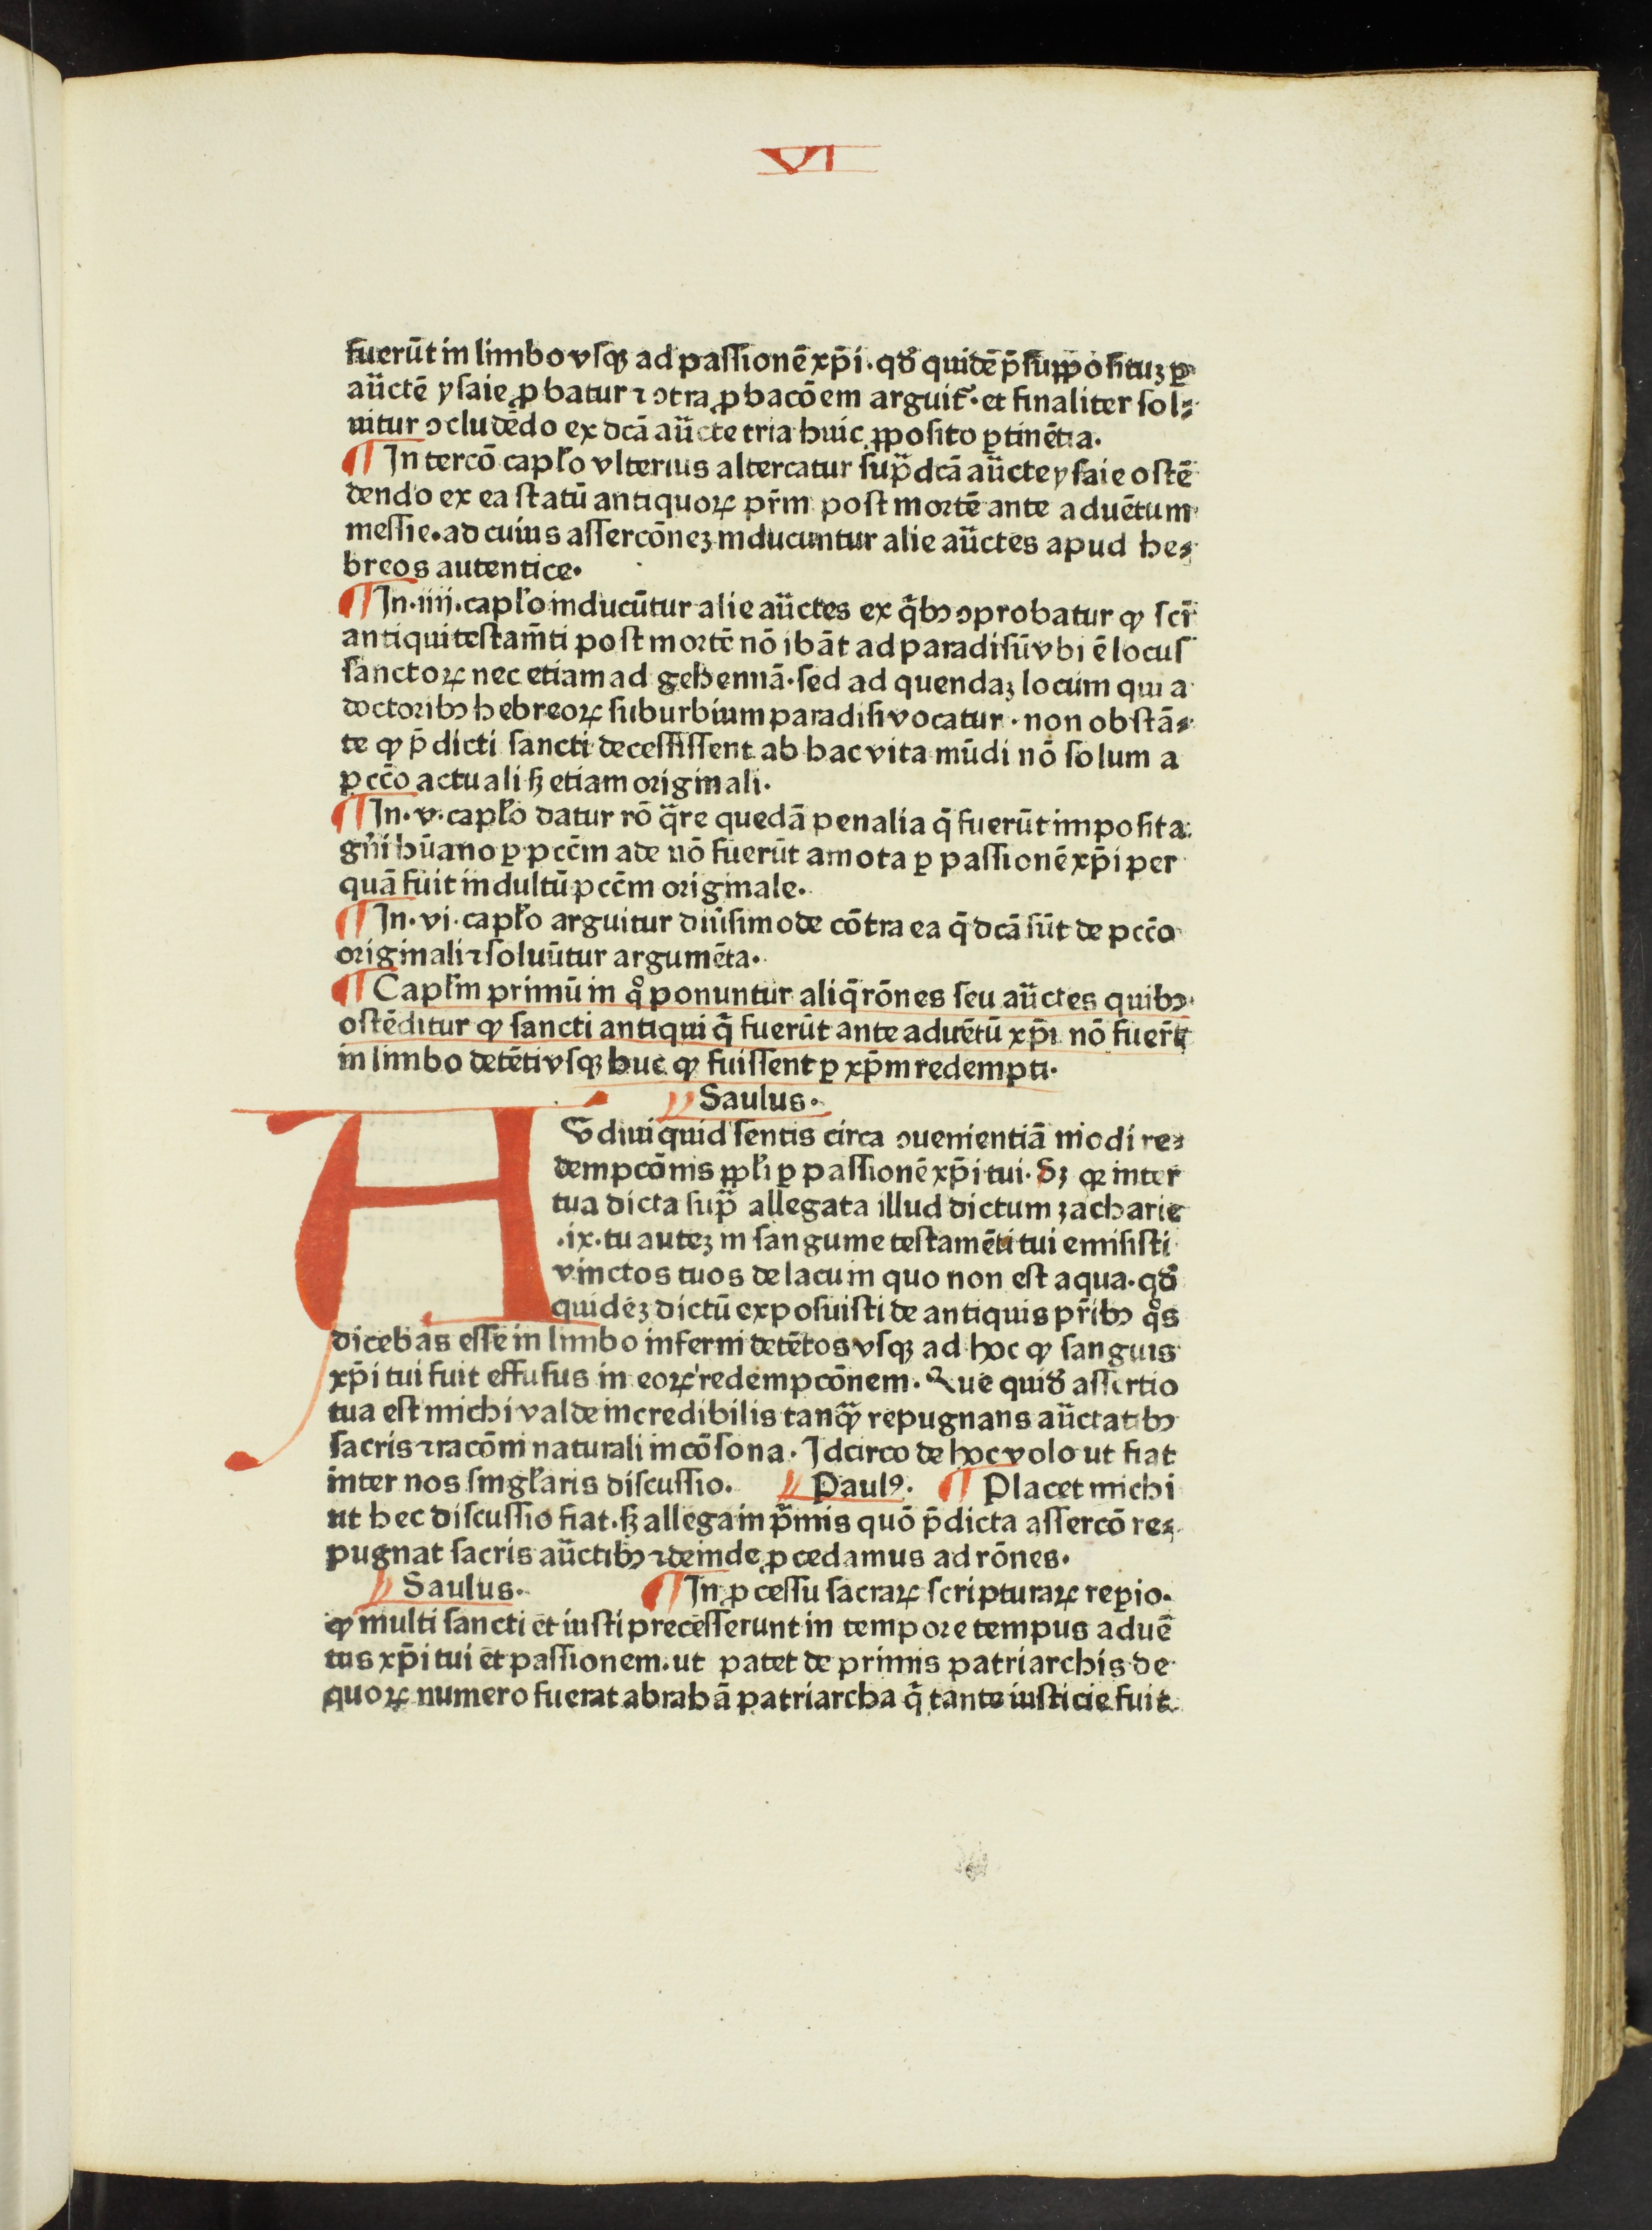 VI
fuerūt in limbo vſqꝫ ad paſſionē xp̄i · qð quidē p̄ſuppoſituꝫ ꝑ
aūctē yſaie ꝓbatur ⁊ ↄtra ꝓbacōem arguit᷑ · et finaliter ſol⸗
uitur ↄcludēdo ex dcā aūcte tria huic ꝓpoſito ꝑtinētia.
¶ In tercō capł'o vlterius altercatur ſup̄ dcā aūcte yſaie oſtē
dendo ex ea ſtatū antiquoꝝ pr̄m poſt mortē ante aduētum
meſſie · ad cuius aſſercōneꝫ inducuntur alie aūctes apud he⸗
breos autentice ·
¶ In · iiij · capł'o inducūtur alie aūctes ex q̄bꝫ ↄprobatur ꝙ ſcī
antiqui teſtam̄ti poſt mortē nō ibāt ad paradiſū vbi ē locuſ
ſanctoꝝ nec etiam ad gehennā · ſed ad quendaꝫ locum qui a
doctoribꝫ hebreoꝝ ſuburbium paradiſi vocatur · non obſtā⸗
te ꝙ p̄dicti ſancti deceſſiſſent ab hac vita mūdi nō ſolum a
pcc̄o actuali ſꝫ etiam originali ·
¶ In · v · capł'o datur rō q̄re quedā penalia q̄ fuerūt impoſita
gn̄i hūano ꝑ pcc̄m ade nō fuerūt amota ꝑ paſſionē xp̄i per
quā fuit indultū pcc̄m originale ·
¶ In · vi · capł'o arguitur diūſimode cōtra ea q̄ dcā ſūt de pcc̄o
originali ⁊ ſoluūtur argumēta ·
¶ Capł'm primū in qͦ ponuntur aliq̄ rōnes ſeu aūctes quibꝫ
oſtēditur ꝙ ſancti antiqui q̄ fuerūt ante aduētū xp̄i nō fuer̄t
in limbo detēti vſqꝫ huc ꝙ fuiſſent ꝑ xp̄m redempti ·
Saulus ·
AVdiui quid ſentis circa ↄuenientiā modi re⸗
dempcōnis ppł'i ꝑ paſſionē xp̄i tui · Sꝫ qꝛ inter
tua dicta ſup̄ allegata illud dictum ꝫacharie
· ix · tu auteꝫ in ſanguine teſtamēti tui emiſiſti
vinctos tuos de lacu in quo non eſt aqua · qð
quidēꝫ dictū expoſuiſti de antiquis pr̄ibꝫ qͦs
dicebas eſſe in limbo inferni detētos vſqꝫ ad hoc ꝙ ſanguis
xp̄i tui fuit effuſus in eoꝝ redempcōnem · Que quið aſſertio
tua eſt michi valde incredibilis tanqꝫ̄ repugnans aūctatibꝫ
ſacris ⁊ racōni naturali incōſona · Idcirco de hoc volo ut fiat
inter nos ſingł'aris diſcuſſio. Paulꝰ · ¶ Placet michi
ut hec diſcuſſio fiat · ſꝫ allega in p̄mis quō p̄dicta aſſercō re⸗
pugnat ſacris aūctibꝫ ⁊ deinde ꝓcedamus ad rōnes ·
Saulus · ¶ In ꝓceſſu ſacraꝝ ſcripturaꝝ reꝑio ·
ꝙ multi ſancti et iuſti preceſſerunt in tempore tempus aduē
tus xp̄i tui et paſſionem · ut patet de primis patriarchis de
quoꝝ numero fuerat abrahā patriarcha q̄ tante iuſticie fuit